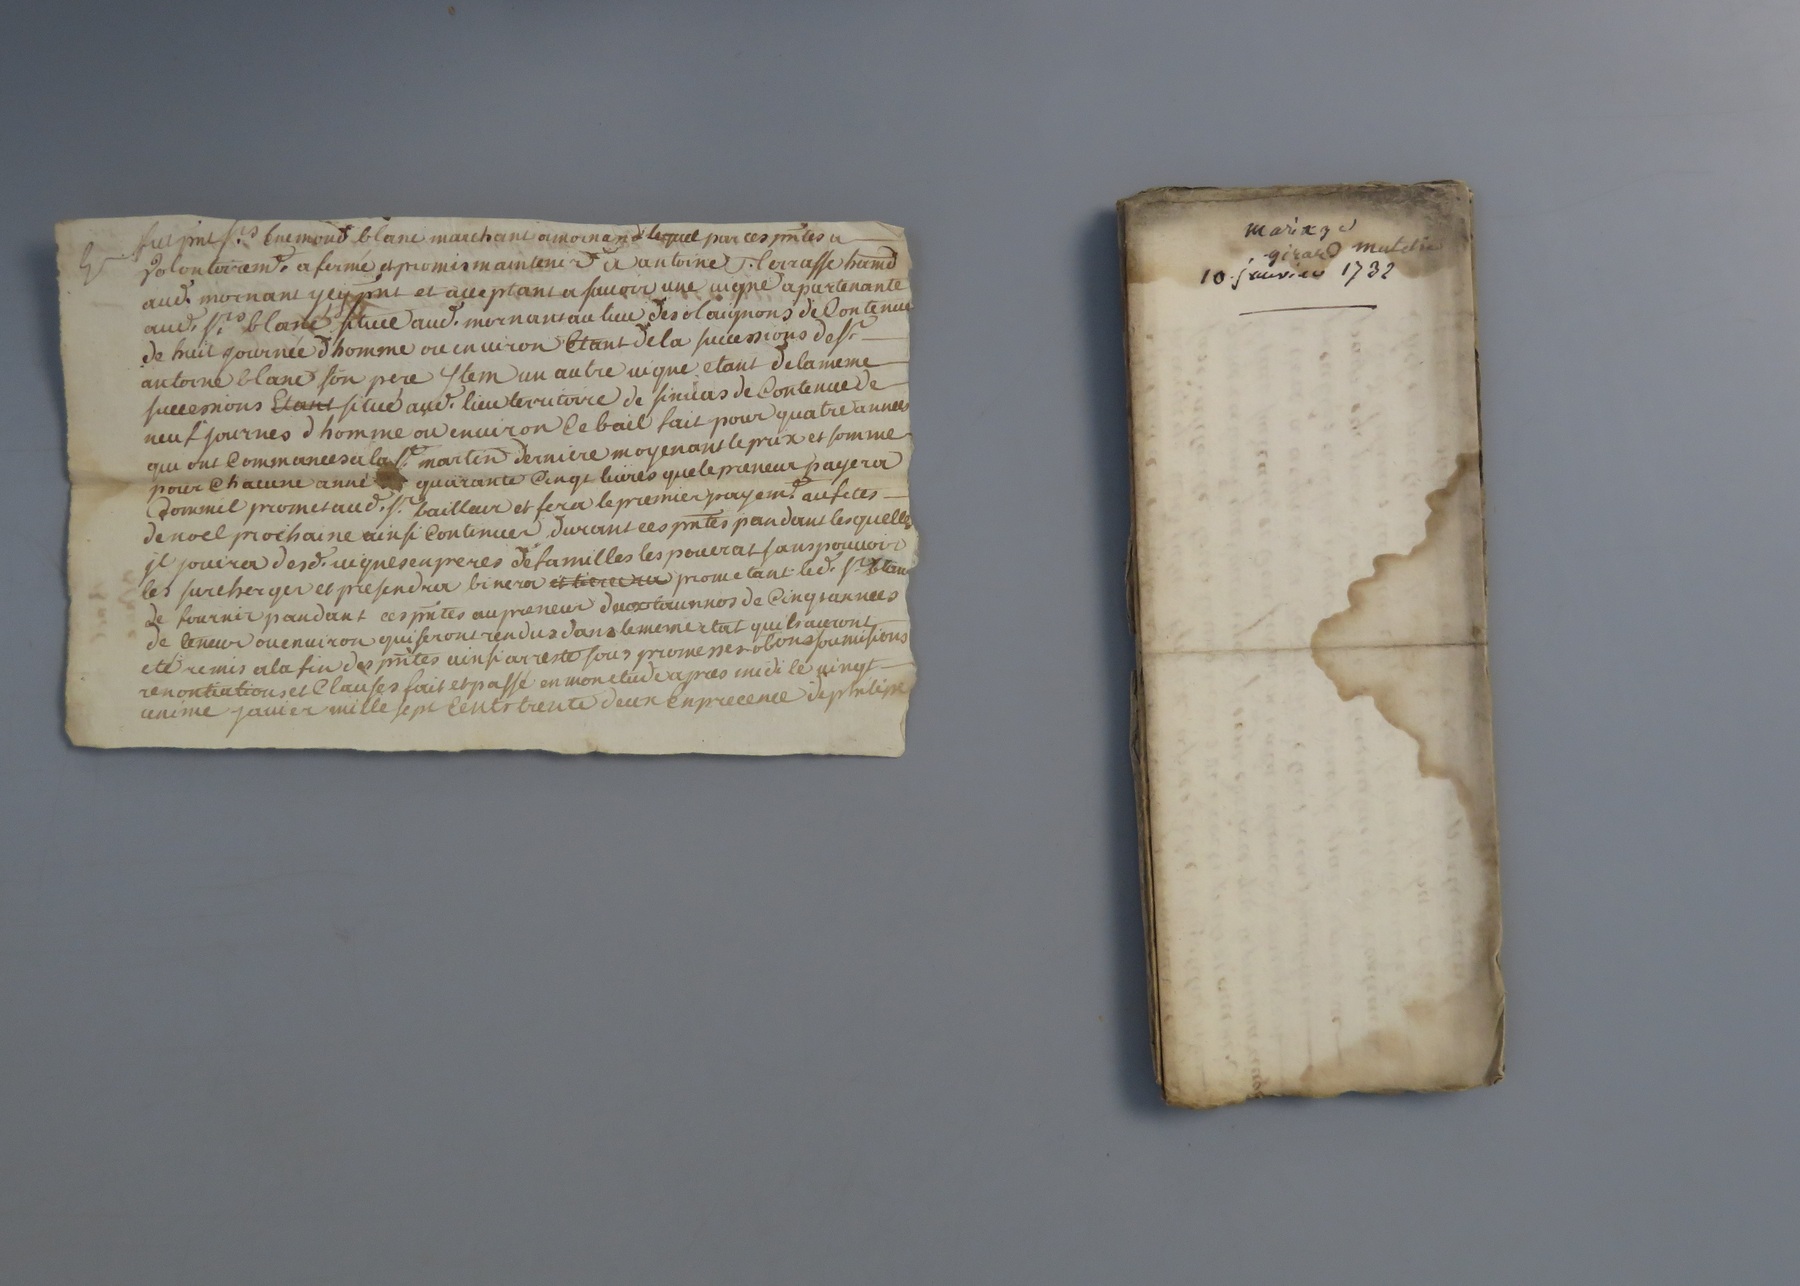 fut pnt Sr Enemond blanc marchant a mornand lequel par ces pntes a
volontairemt. a fermé et promis maintenir d a antoine terrasse
aud. mornant y ey pnt et aceptant a savoir une vigne apartenante
aud. Sr blanc situé aud. mornant au lieu des olaignons de Contenue
de huit journée d'homme ou environ Etant de la successions de Sr
antoine blanc son pere Item un autre vigne etant de la meme
successions Etant situé aud. lieu territoire de de Contenue de
neuf journes d homme ou environ Ce bail fait pour quatre années
qui ont Commancées a la St. martin derniere moyenant le prix et somme
pour Chacune anné quarante Cinqt livres que le preneur payera
Comme il promet aud. Sr. bailleur et fera le premier payemt. au fetes
de noel prochaine ainsi Continuer durant ces pntes pandant lesquelles
il jouira desd. vignes en peres de familles les pouerat sans pouvoir
les surcherger et binera prometant led. Sr blanc
de fournir pandant ces pntes au preneur de Cinqt années
de teneur ou environ qui seront rendus dans le meme etat qu'ils auront
eté remis a la fin des pntes ainsi arresté sous promesses obons sumisions
renontiations et Clauses fait et passé en mon etude apres midi le vingt
unime javier mille sept Cents trente deux En precence de philipe
mariage
girard
10 janvier 1732